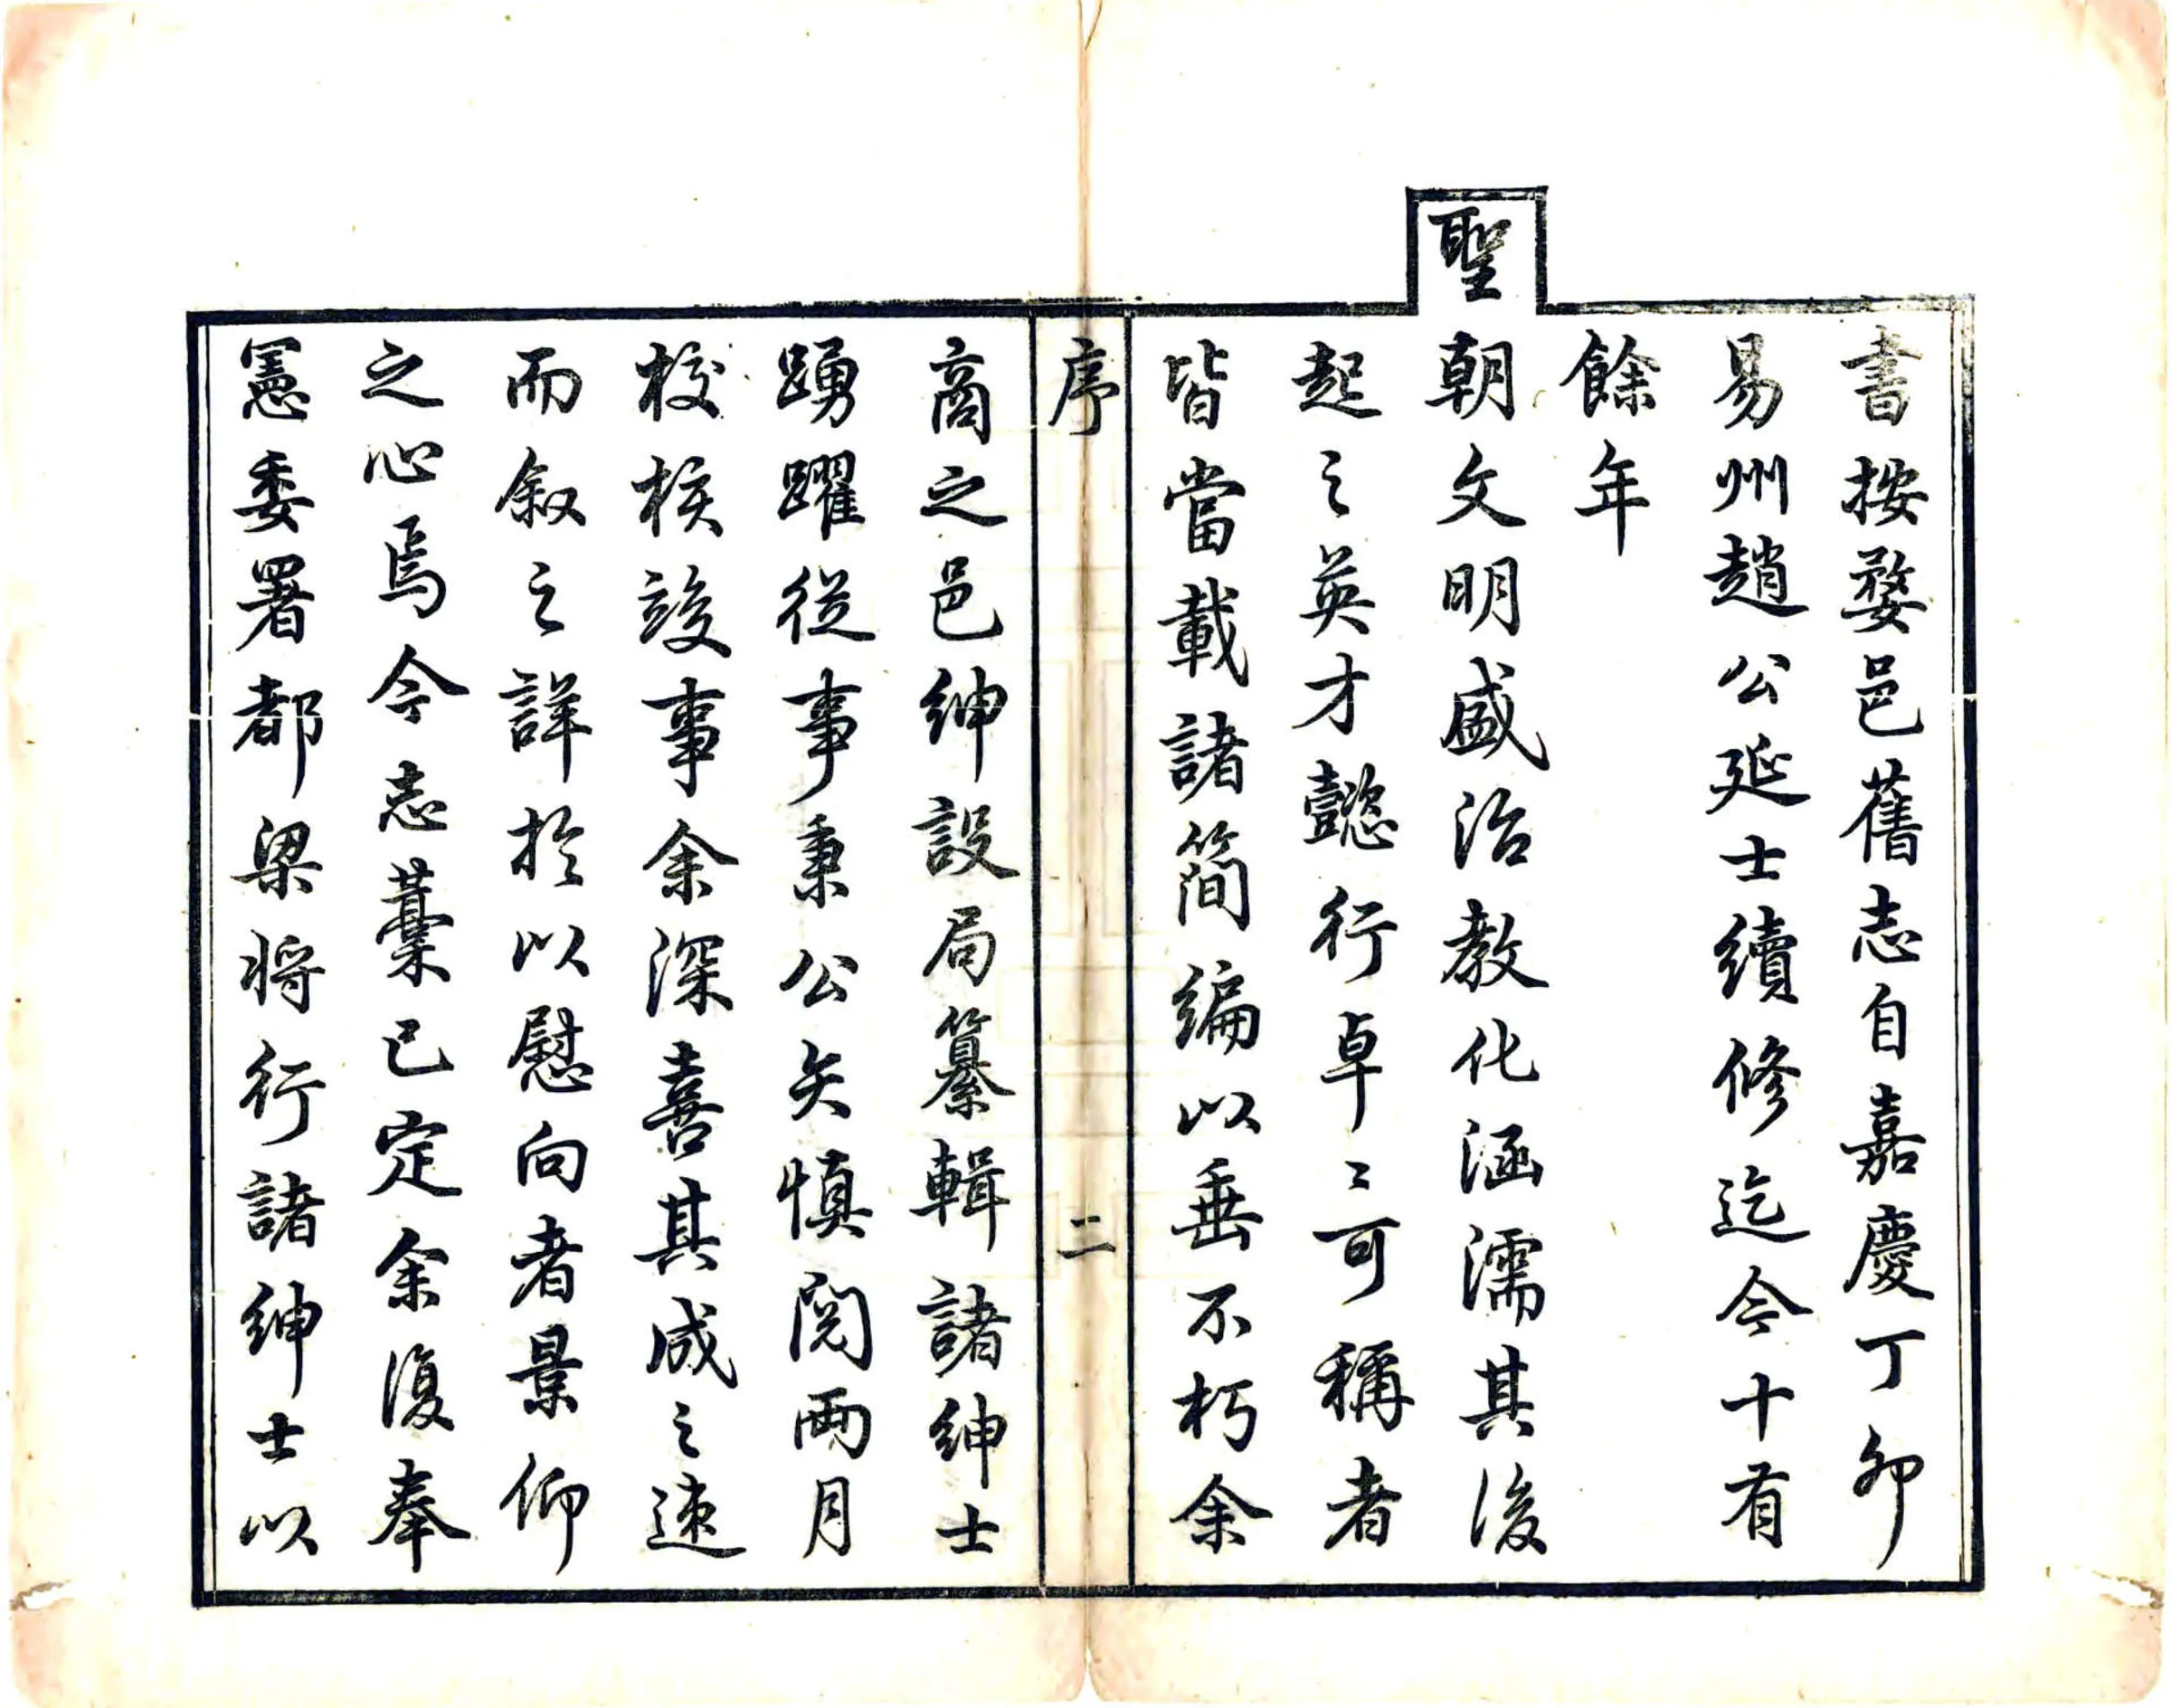 書按婺邑舊志自嘉慶丁卯
易州趙公延士續修迄今十有
餘年
聖朝文明盛治教化涵濡其後
起之英才懿行卓〻可稱者
皆當載諸簡編以垂不朽余
序
二
商之邑紳設局纂輯諸紳士
踴躍從事秉公矢慎閱兩月
校核竣事余深喜其成之速
而叙之詳於以慰向者景仰
之心焉今志藁已定余復奉
憲委署都梁将行諸紳士以